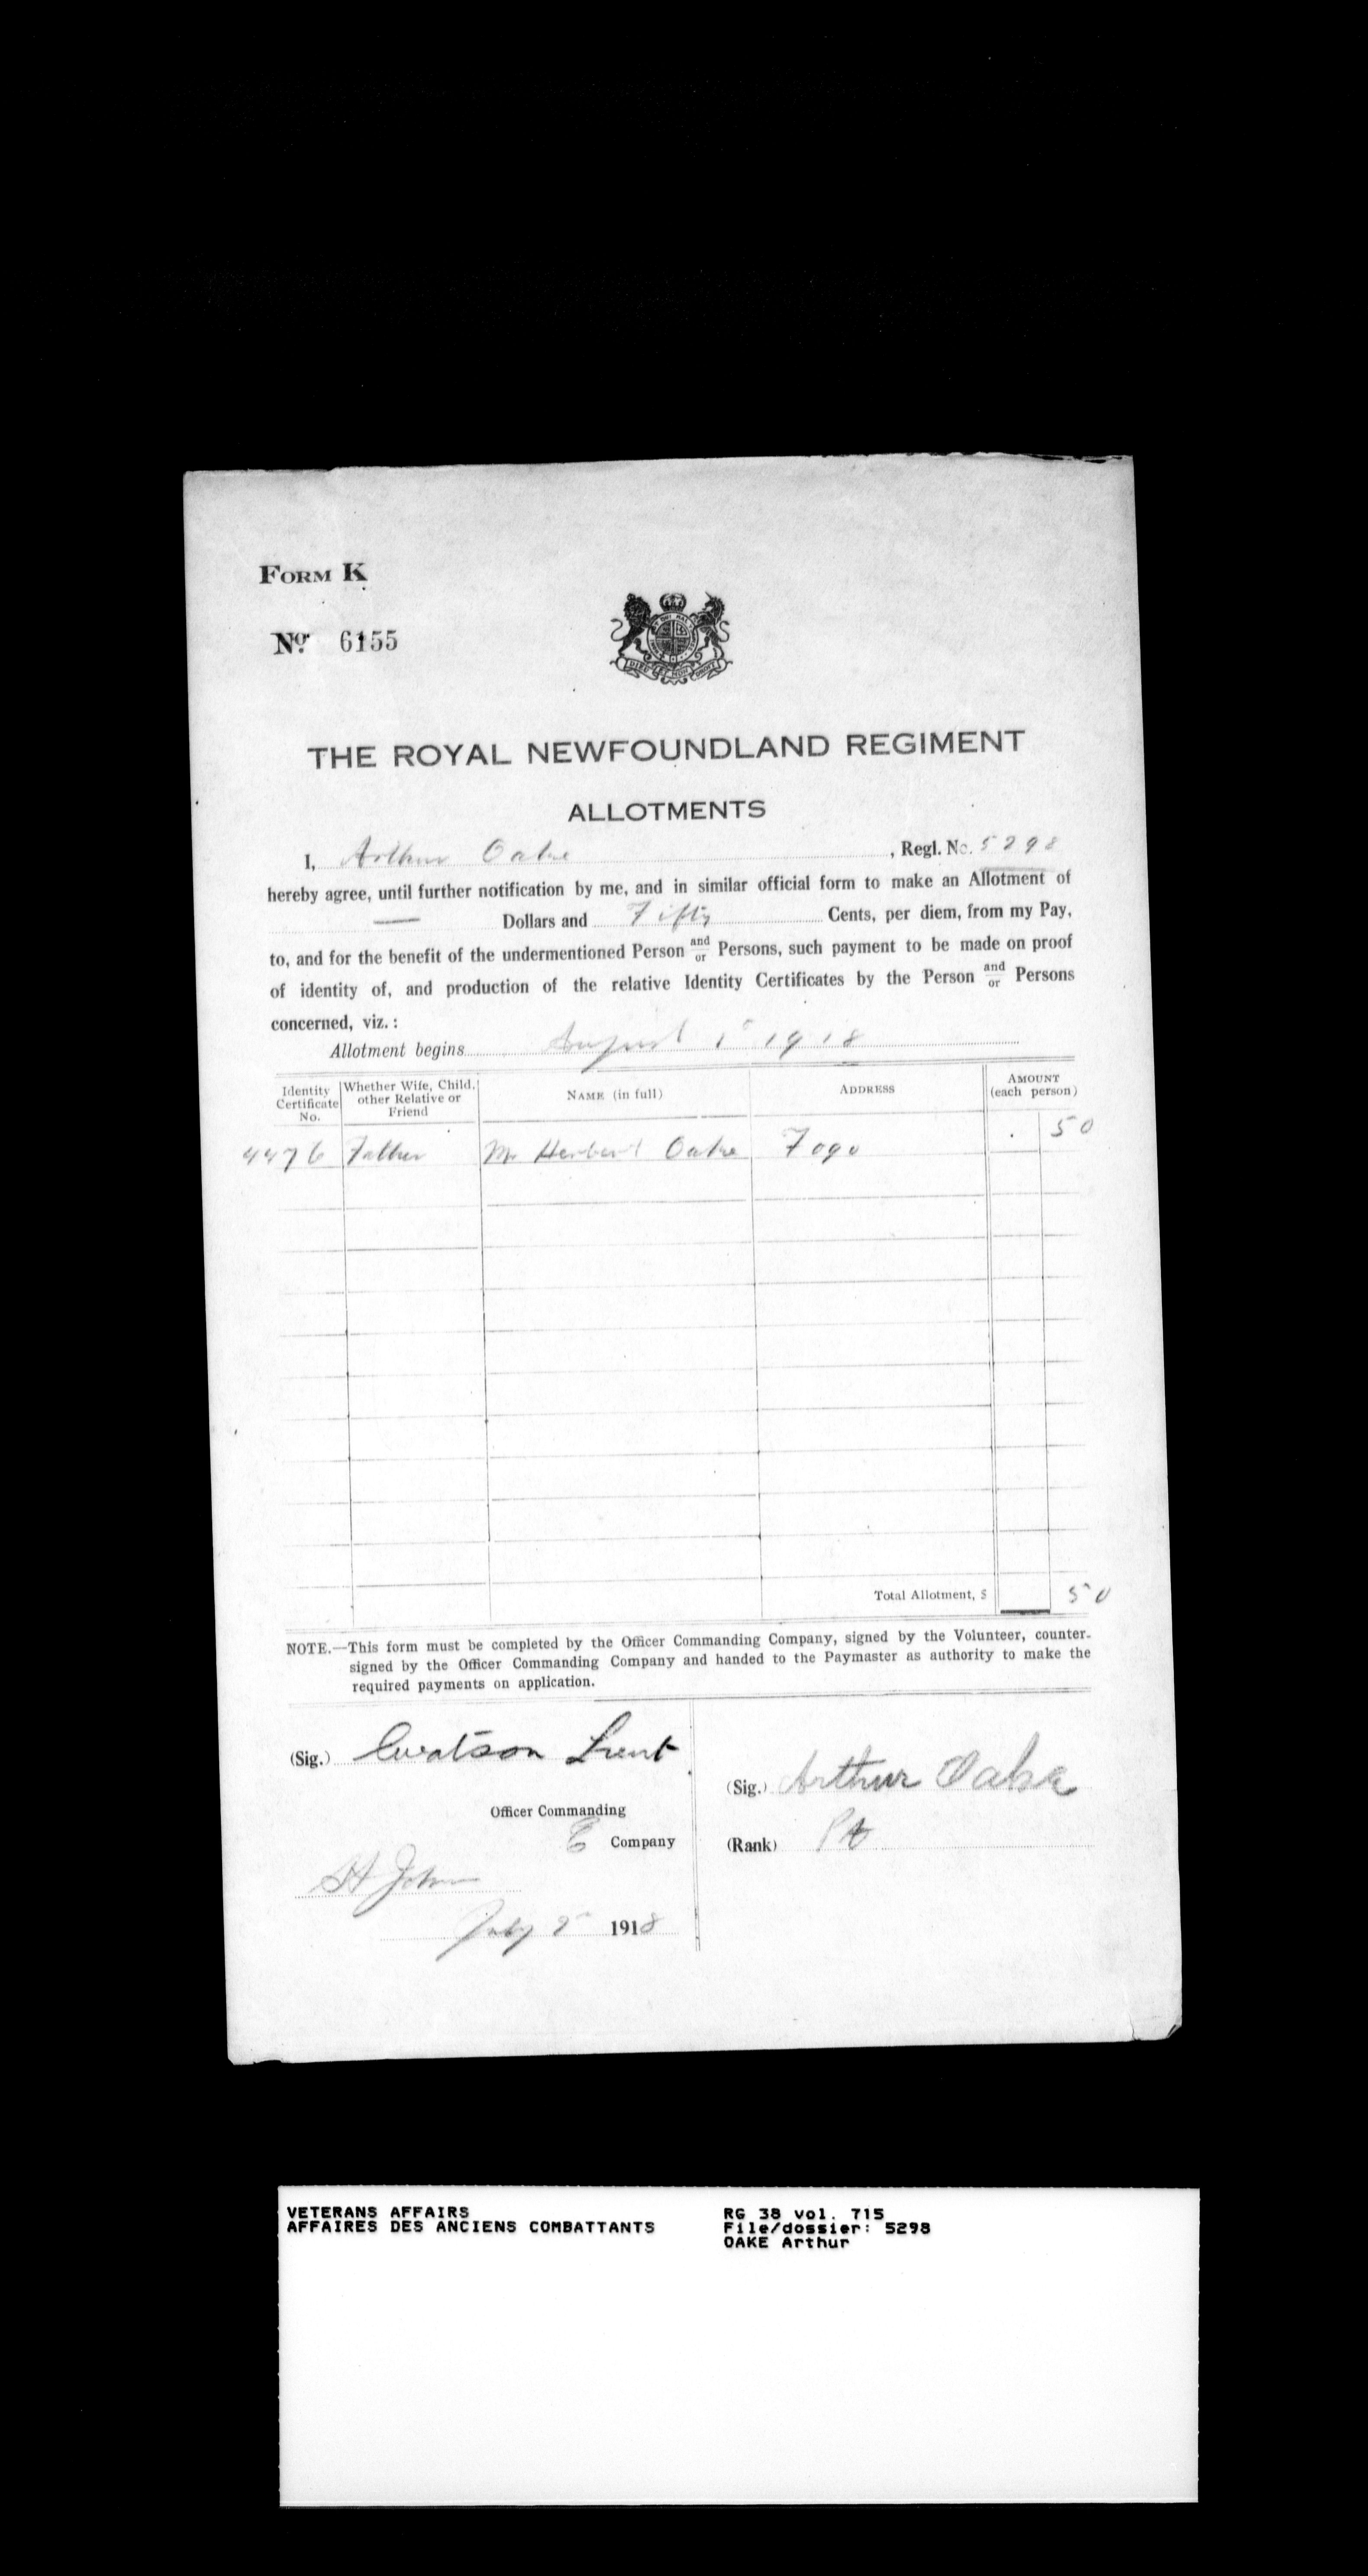 FORM K
No. 6155
DIEU ET MON DROIT
THE ROYAL NEWFOUNDLAND REGIMENT
ALLOTMENTS
I, Arthur Oake , Regl. No. 5298
hereby agree, until further notification by me, and in similar official form to make an Allotment of
— Dollars and Fifty Cents, per diem, from my Pay,
to, and for the benefit of the undermentioned Person and/or Persons, such payment to be made on proof
of identity of, and production of the relative Identity Certificates by the Person and/or Persons
concerned, viz. :
Allotment begins August 1st 1918
Identity Certificate No. Whether Wife, Child, other Relative or Friend NAME (in full) ADDRESS AMOUNT (each person)
4476 Father Mr Herbert Oake Fogo . 50
Total Allotment, $ 50
NOTE.—This form must be completed by the Officer Commanding Company, signed by the Volunteer, counter-
signed by the Officer Commanding Company and handed to the Paymaster as authority to make the
required payments on application.
(Sig.) Watson Lieut
(Sig.) Arthur Oake
Officer Commanding
Company
(Rank) Pte
St John
July 1918
VETERANS AFFAIRS RG 38 vol. 715
AFFAIRES DES ANCIENS COMBATTANTS File/dossier: 5298
OAKE Arthur